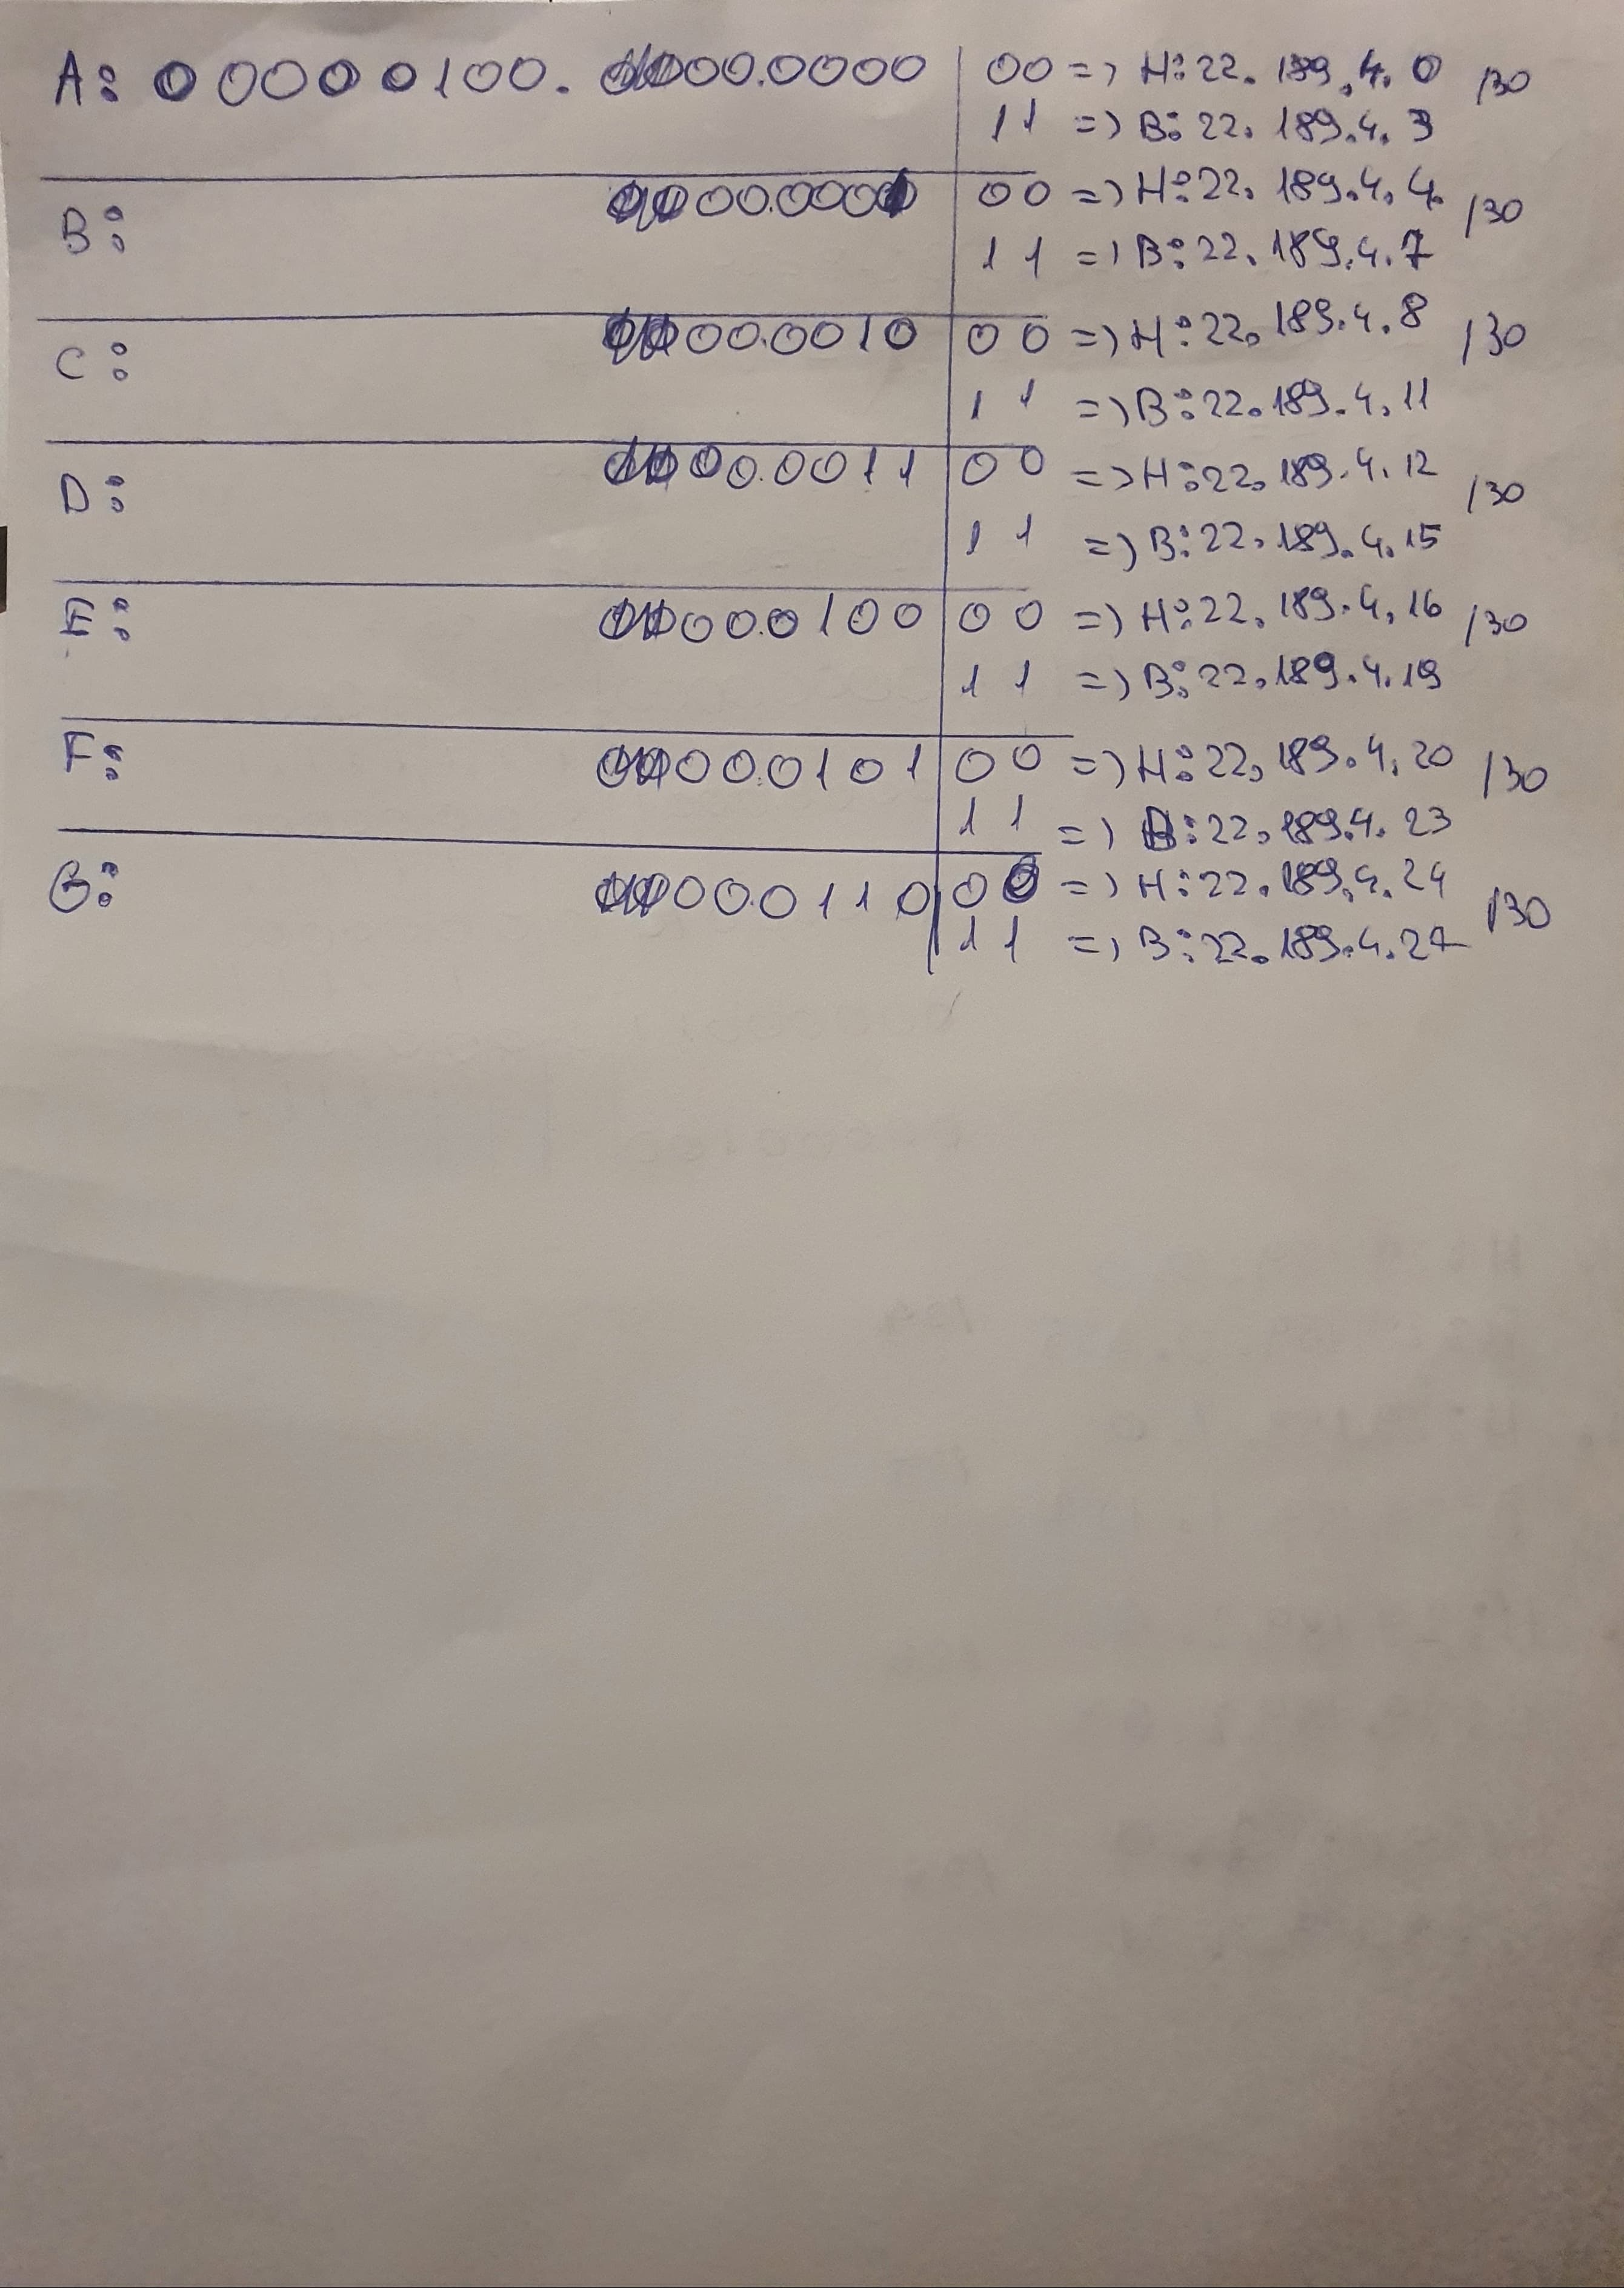 A: 00000100. 00.0000 | 00 => H: 22. 189.4. 0 /30
11 => B: 22. 189.4. 3
B: 00.0001 | 00 => H: 22. 189.4. 4. /30
11 => B: 22. 189.4.7
C: 00.0010 | 00 => H: 22. 189.4.8 /30
11 => B: 22. 189.4.11
D: 00.0011 | 00 => H: 22. 189.4.12 /30
11 => B: 22. 189.4.15
E: 00.0100 | 00 => H: 22. 189.4.16 /30
11 => B: 22. 189.4.19
F: 00.0101 | 00 => H: 22. 189.4.20 /30
11 => B: 22. 189.4. 23
G: 00.0110 | 00 => H: 22. 189.4. 24 /30
11 => B: 22. 189.4.27